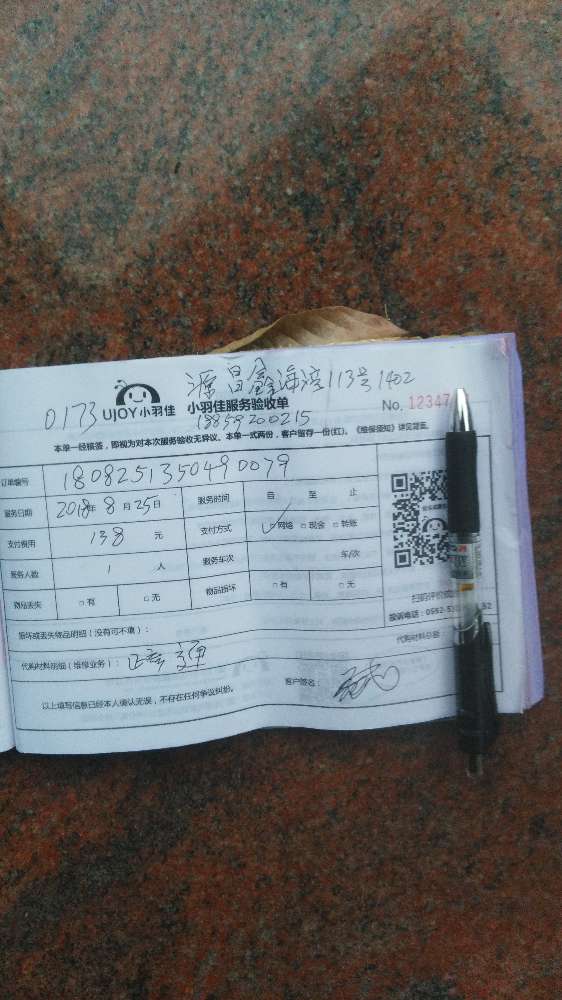 源昌鑫海湾113号1402
0173 UJOY小羽佳 小羽佳服务验收单 No. 12347
18859200215
本单一经填签，即视为对本次服务验收无异议。本单一式两份，客户留存一份(红)。《维保须知》详见背面。
订单编号 180825135049 0079
服务日期 2018年 8月 25日 服务时间 自 至 止
支付费用 138 元 支付方式 ✓网络 □现金 □转账
服务人数 1 人 服务车次 车/次
物品丢失 □有 □无 物品损坏 □有 □无
扫码评价
投诉电话：0592-5
损坏或丢失物品明细（没有可不填）：
代购材料明细（维修业务）： 代购材料总额：
以上填写信息已经本人确认无误，不存在任何争议纠纷。 客户签名：